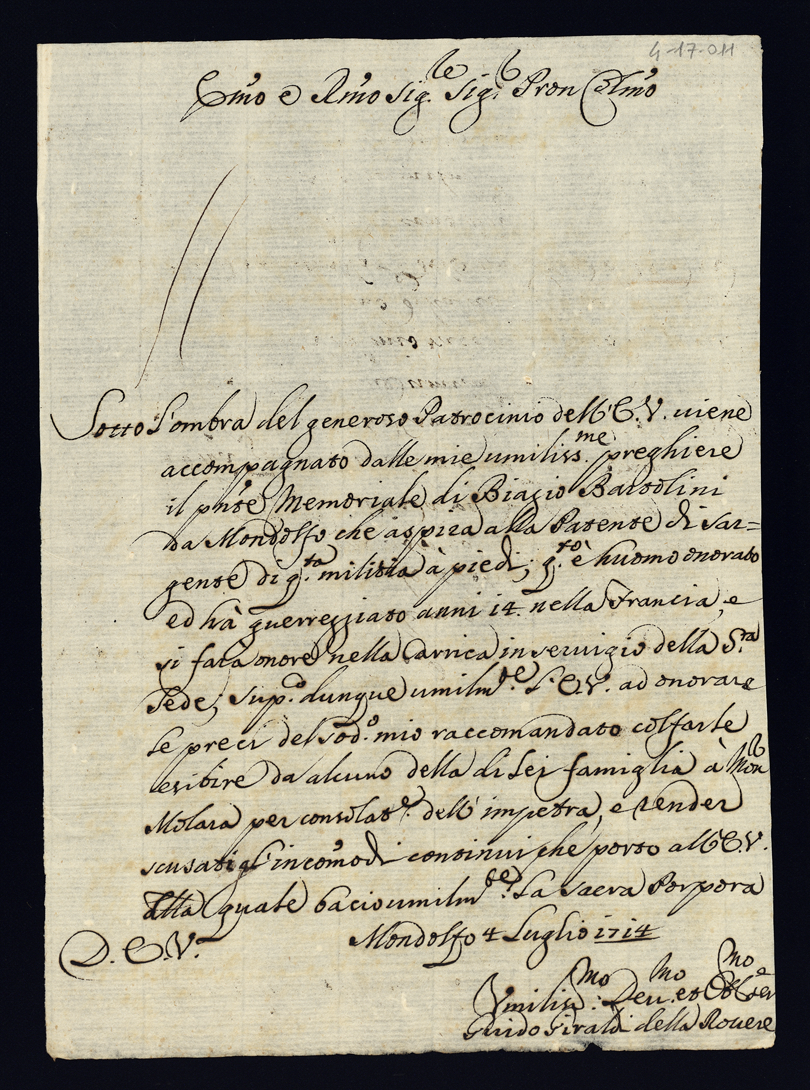 4-17-011
Emo e Rmo Sig.re Sig.r Pron Colmo
Sotto l'ombra del generoso Patrocinio dell'E.V. uiene
accompagnato dalle mie umiliss.me preghiere
il pnte Memoriale di Biagio Bartolini
da Mondolfo che aspira alla Patente di Sar=
gente di q.ta militia à piedi; q.to è huomo onorato
ed hà guerreggiato anni 14. nella Francia, e
si farà onore nella Carrica in seruigio della S.ta
Sede; sup.co dunque umilm.te l'E.V. ad onorare
le preci del sod.o mio raccomandato colfarle
esibire da alcuno della di Lei famiglia à Mon.r
Molara per consolat.e dell'impetra, e render
scusati gl'incomodi continui che porto all'E.V.
alla quale bacio umilm.te la Sacra Porpora
Mondolfo 4 Luglio 1714
D. E. V.
Vmiliss.mo Deu.mo et Obb.mo Ser.e
Guido Giraldi della Rouere